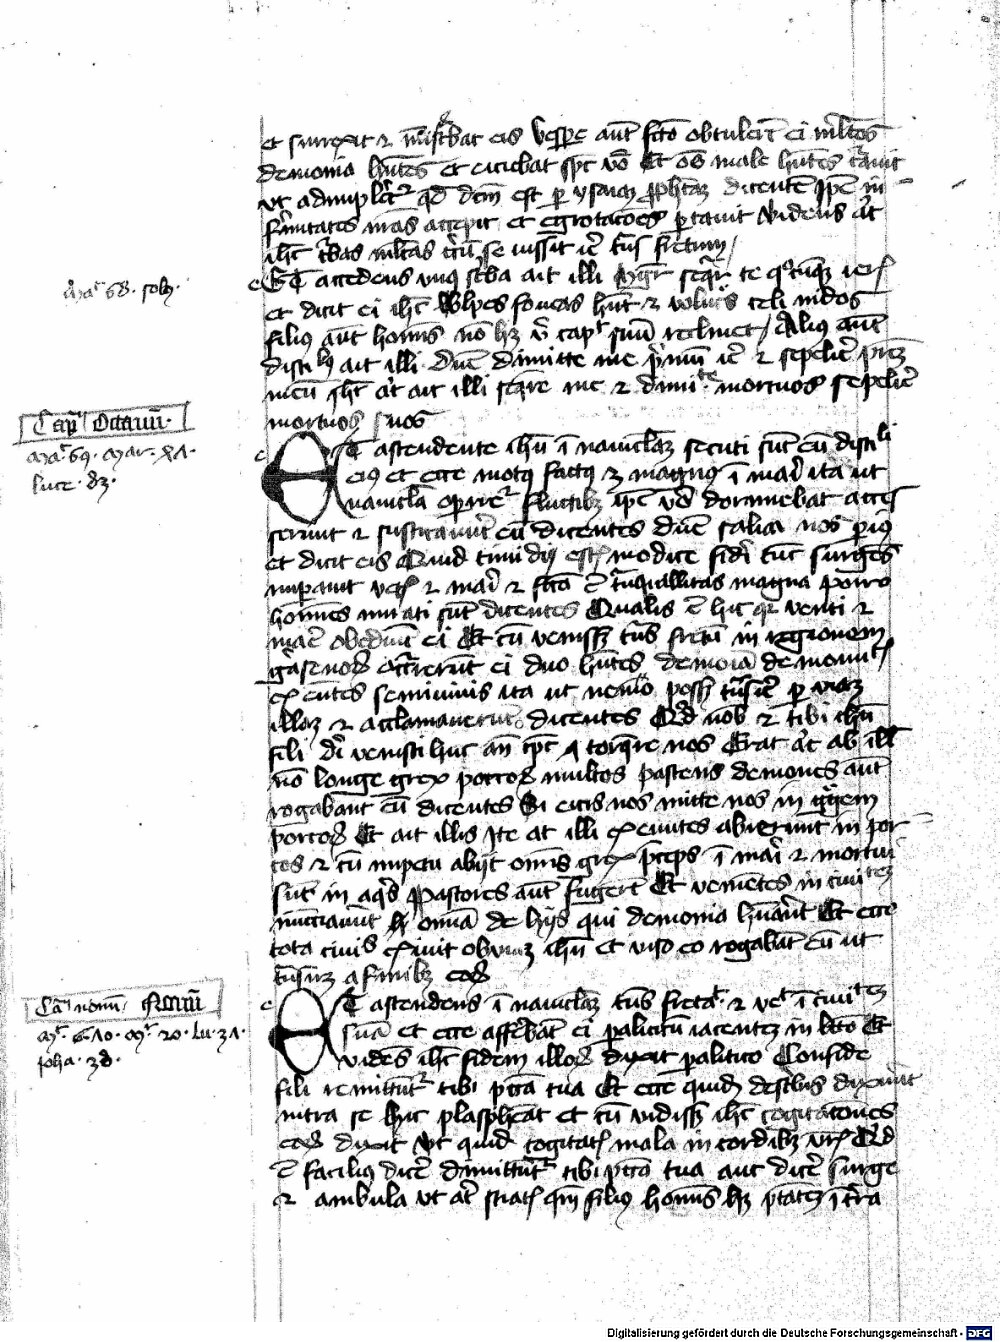 et surrexit et ministrabat eis Vespere aut facto obtulerunt ei multos
demonia hntes et eiciebat spc vo Et os male hntes curavit
ut adimpleret qd dcm est per ysaiam prophetam dicentem ipse in
firmitates nras accepit et egrotacoes portavit Videns at
ihc turbas multas circum se iussit ire trans fretum
Mat 68 solus
Et accedens unus scriba ait illi Mgr sequar te quocumque ieris
et dicit ei ihc Wlpes foveas hnt et volucres celi nidos
filius aut hominis no hz ubi caput suum reclinet Alius aut
discipulus ait illi Dne dimitte me primum ire et sepelire patrem
meu ihc at ait illi sequere me et dimitte mortuos sepelire
mortuos suos
Cap Octavum
Mat 69 Mar XL
Luce 83
Et ascendente ihu i naviclam secuti sut eu discipuli
eius et ecce motus factus est magnus i mari ita ut
navicla operiretur fluctibus ipe vo dormiebat acces
serunt et suscitaverunt eu dicentes dne salva nos perimus
et dicit eis Quid timidi estis modice fidei tuc surgens
imperavit ventis et mari et facta e tranquillitas magna porro
homines mirati sut dicentes Qualis e hic quia venti et
mare obediunt ei Et cu venisset trans fretum in regionem
gerasenorum occurrerunt ei duo hntes demonia de monumentis
exeuntes sevi nimis ita ut nemo posset transire per viam
illam et acclamaverunt dicentes Quid nob et tibi ihu
fili dei venisti huc an tpc torquere nos Erat at ab illis
no longe grex porcorum multos pascens demones aut
rogabant eu dicentes Si eicis nos mitte nos in gregem
porcorum Et ait illis Ite at illi exeuntes abierunt in por
cos et cu impetu abijt omnis grex preceps i mari et mortui
sut in aquis Pastores aut fugerunt Et venietes in civitatem
nunciaverunt omnia de hijs qui demonia habuerant Et ecce
tota civitas exivit obviam ihu et viso eo rogabant eu ut
transiret a finibus eorum
Ca nonum
Mt 6 70 Mr 20 Lu 37
Joha 38
Et ascendens i naviclam trans fretavit et venit i civitatem
sua et ecce afferebant ei paliticum iacentem in lecto Et
videns ihc fidem illorum dixit palitico Confide
fili remittuntur tibi pcca tua Et ecce quidam de scribis dixerunt
intra se hic plasphemat et cu vidisset ihc cogitacones
eorum dixit Ut quid cogitatis mala in cordibus vris Quid
e facilius dicere dimittuntur tibi pcca tua aut dicere surge
et ambula ut at sciatis qm filius hominis hz ptatem i tra
Digitalisierung gefördert durch die Deutsche Forschungsgemeinschaft - DFG